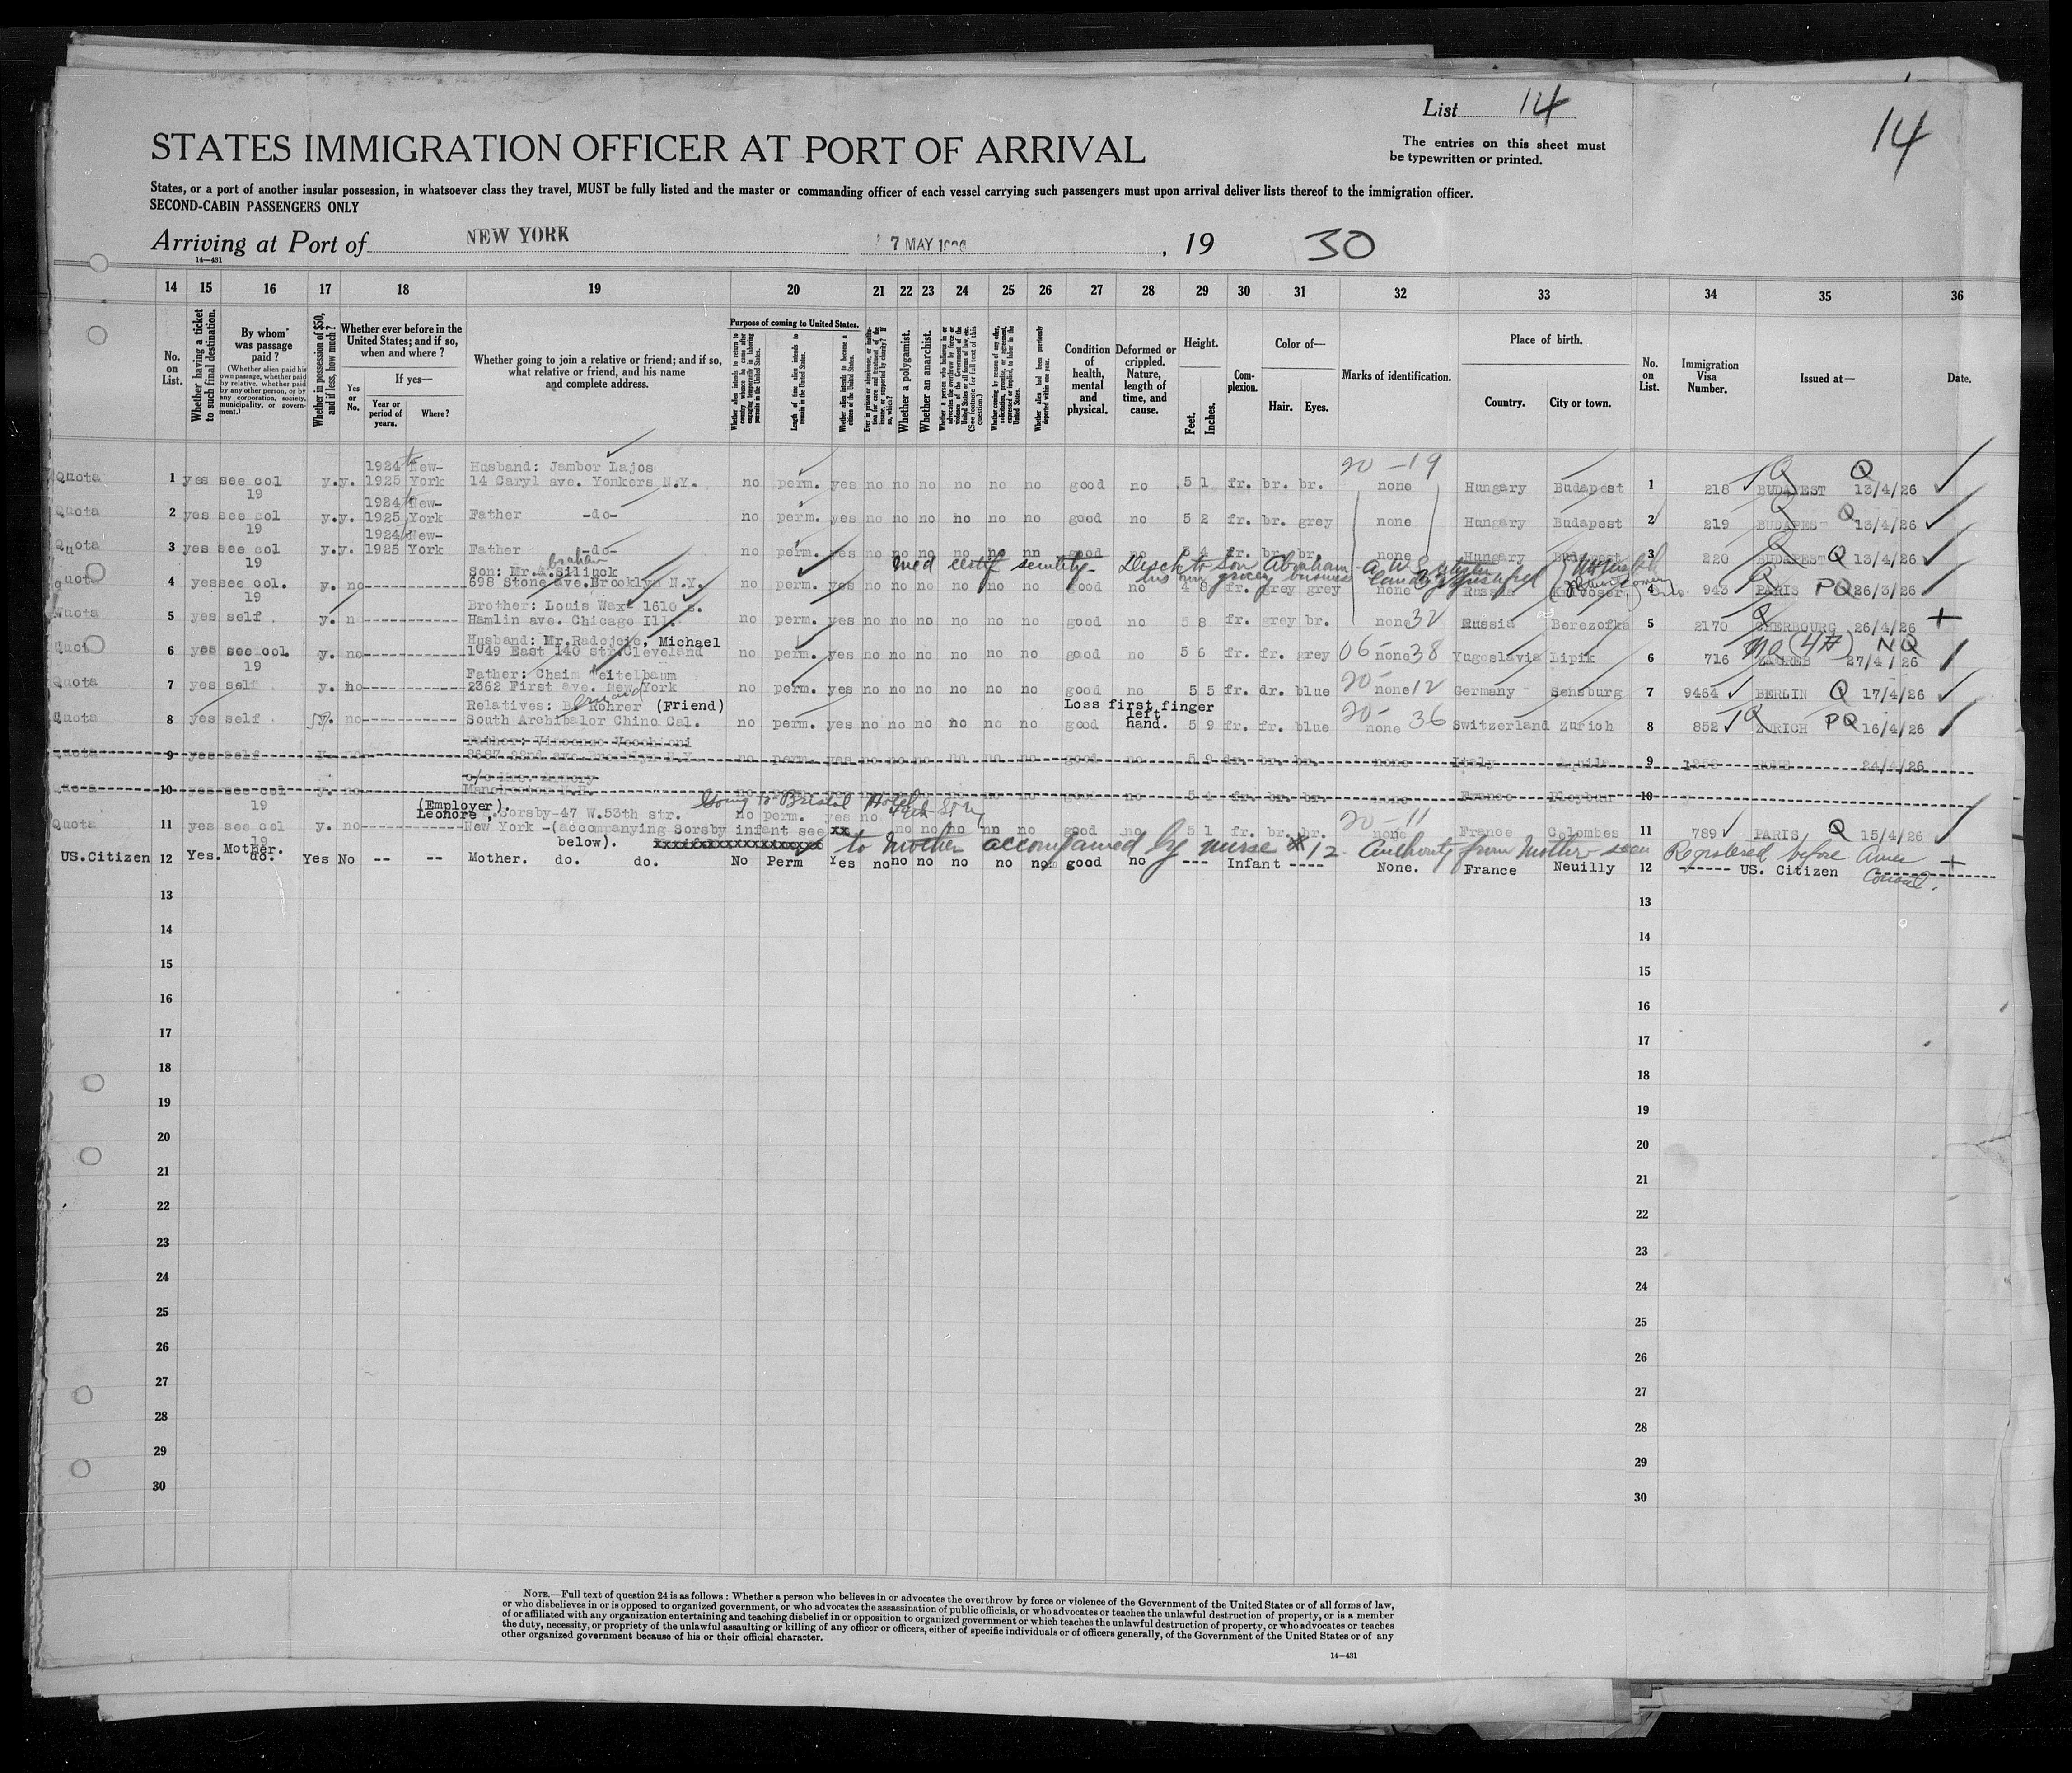 List 14
14
STATES IMMIGRATION OFFICER AT PORT OF ARRIVAL
The entries on this sheet must
be typewritten or printed.
States, or a port of another insular possession, in whatsoever class they travel, MUST be fully listed and the master or commanding officer of each vessel carrying such passengers must upon arrival deliver lists thereof to the immigration officer.
SECOND-CABIN PASSENGERS ONLY
Arriving at Port of NEW YORK 7 MAY , 19 30
14—431
14 15 16 17 18 19 20 21 22 23 24 25 26 27 28 29 30 31 32 33 34 35 36
No. on List.
Whether having a ticket to such final destination.
By whom was passage paid?
(Whether alien paid his own passage, whether paid by relative, whether paid by any other person, or by any corporation, society, municipality, or government.)
Whether in possession of $50, and if less, how much?
Whether ever before in the United States; and if so, when and where?
Yes or No.
If yes—
Year or period of years.
Where?
Whether going to join a relative or friend; and if so, what relative or friend, and his name and complete address.
Purpose of coming to United States.
Length of time alien intends to remain in the United States.
Whether a polygamist.
Whether an anarchist.
Condition of health, mental and physical.
Deformed or crippled. Nature, length of time, and cause.
Height.
Feet. Inches.
Complexion.
Color of—
Hair. Eyes.
Marks of identification.
Place of birth.
Country. City or town.
No. on List.
Immigration Visa Number.
Issued at—
Date.
Quota 1 yes see col 19 y. y. 1924 1925 New-York Husband: Jambor Lajos 14 Caryl ave. Yonkers N.Y. no perm. yes no no no no no no good no 5 1 fr. br. br. 20-19 none Hungary Budapest 1 218 BUDAPEST Q 13/4/26
Quota 2 yes see col 19 y. y. 1924 1925 New-York Father -do- no perm. yes no no no no no no good no 5 2 fr. br. grey none Hungary Budapest 2 219 BUDAPEST Q 13/4/26
Quota 3 yes see col 19 y. y. 1924 1925 New-York Father -do- no perm. yes no no no no no nn good no 5 4 fr. br. br. none Hungary Budapest 3 220 BUDAPEST Q 13/4/26
med certif senility
Quota 4 yes see col. 19 y. no Son: Mr. A. Silinck 698 Stone ave. Brooklyn N.Y. no perm. yes no no no no no no good no 4 8 fr. grey grey none Russia 4 943 PARIS PQ 26/3/26
5 yes self y. n Brother: Louis Wax 1610 s. Hamlin ave. Chicago Ill. no perm. yes no no no no no no good no 5 8 fr. grey br. none 32 Russia Berezofka 5 2170 CHERBOURG 26/4/26
6 yes see col. 19 y. no Husband: Mr. Radojcic, Michael 1049 East 140 str. Cleveland no perm. yes no no no no no no good no 5 6 fr. fr. grey 06- none 38 Yugoslavia Lipik 6 716 ZAGREB NQ 27/4/26
Quota 7 yes self y. no Father: Chaim Teitelbaum 2362 First ave. New York no perm. yes no no no no no no good no 5 5 fr. dr. blue 20- none 12 Germany Sensburg 7 9464 BERLIN Q 17/4/26
Quota 8 yes self y. no Relatives: Rohrer (Friend) South Archibalor Chino Cal. no perm. yes no no no no no no good Loss first finger left hand. 5 9 fr. fr. blue 20- none 36 Switzerland Zurich 8 852 ZURICH PQ 16/4/26
9 yes self y. no Father: Vincenzo Vecchioni 8687 22nd ave. Brooklyn N.Y. no perm. yes no no no no no no good no 5 9 br. br. none Italy 9 24/4/26
10 yes see col 19 y. no Manchester N.H. no good no 5 4 fr. br. br. none France 10
Going to Bristol Hotel
Quota 11 yes see col 19 y. no (Employer). Leonore Sorsby-47 W.53th str. New York -(accompanying Sorsby infant see below). no perm. yes no no no no nn no good no 5 1 fr. br. br. 20-11 none France Colombes 11 789 PARIS Q 15/4/26
to mother accompanied by nurse #12 Authority from Mother seen Registered before Amer Consul.
US.Citizen 12 Yes. Mother. do. Yes No -- -- Mother. do. do. No Perm Yes no no no no no no good no --- Infant ---- None. France Neuilly 12 ------ US. Citizen
13 13
14 14
15 15
16 16
17 17
18 18
19 19
20 20
21 21
22 22
23 23
24 24
25 25
26 26
27 27
28 28
29 29
30 30
NOTE.—Full text of question 24 is as follows: Whether a person who believes in or advocates the overthrow by force or violence of the Government of the United States or of all forms of law,
or who disbelieves in or is opposed to organized government, or who advocates the assassination of public officials, or who advocates or teaches the unlawful destruction of property, or is a member
of or affiliated with any organization entertaining and teaching disbelief in or opposition to organized government or which teaches the unlawful destruction of property, or who advocates or teaches
the duty, necessity, or propriety of the unlawful assaulting or killing of any officer or officers, either of specific individuals or of officers generally, of the Government of the United States or of any
other organized government because of his or their official character.
14—431